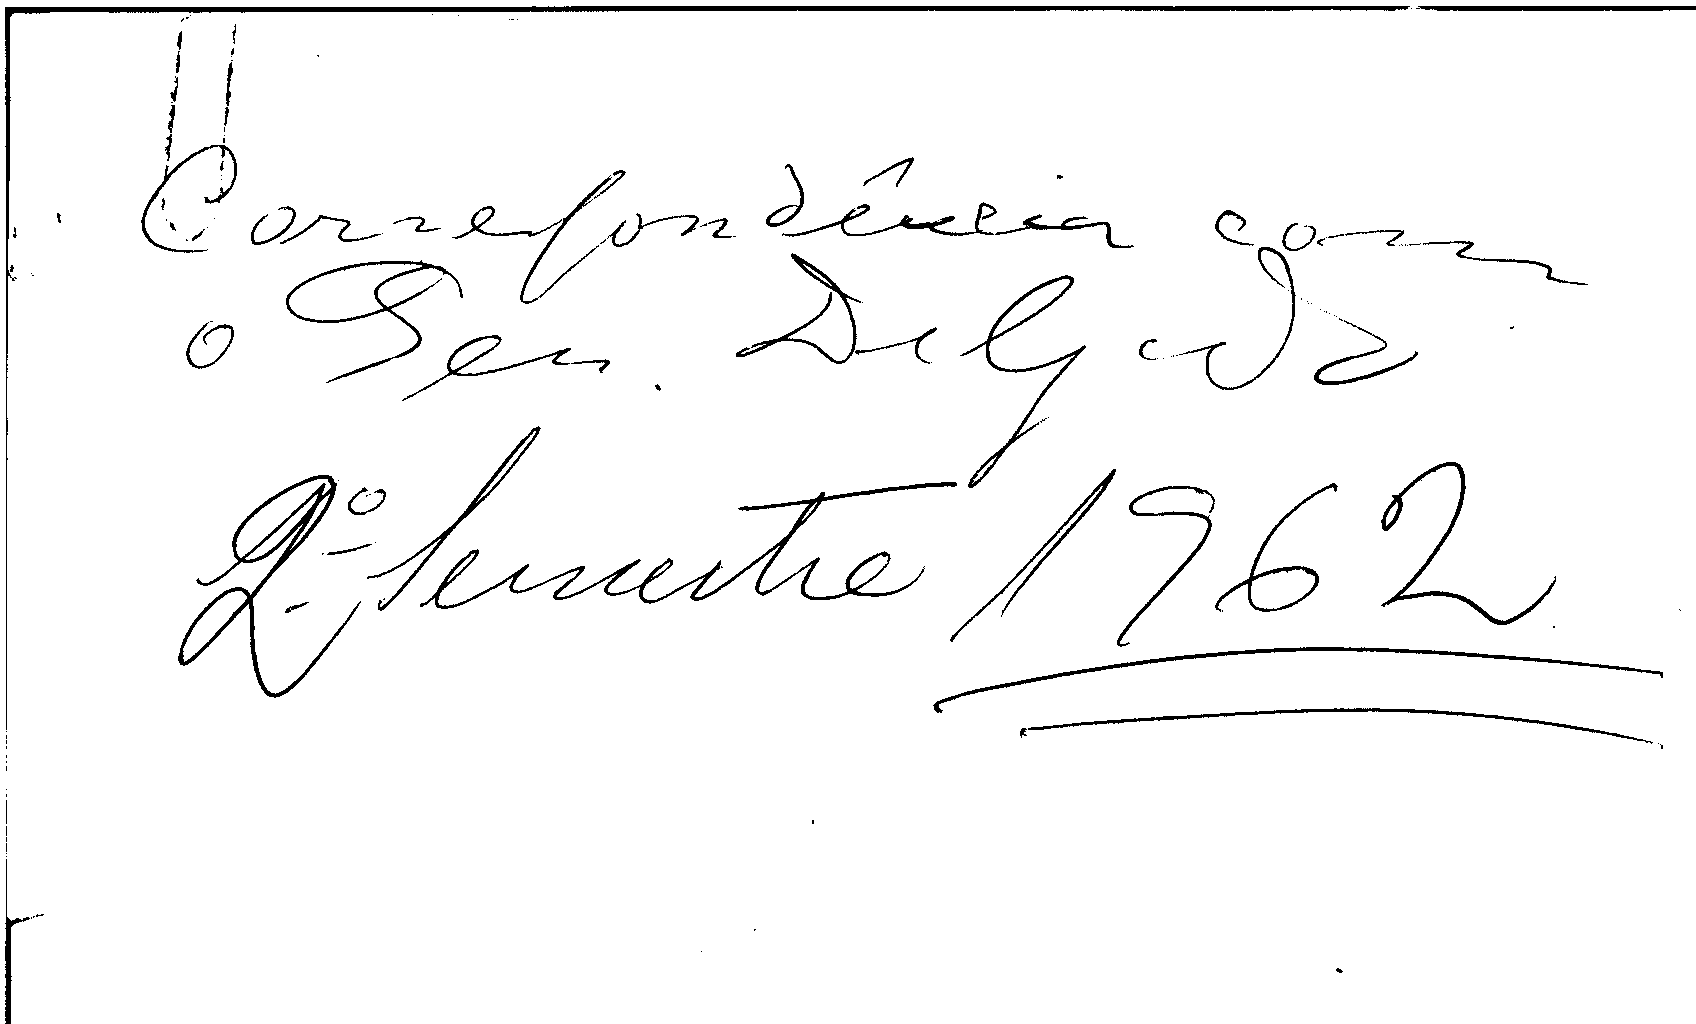 Correspondência com
o Gen. Delgado
2º Semestre 1962